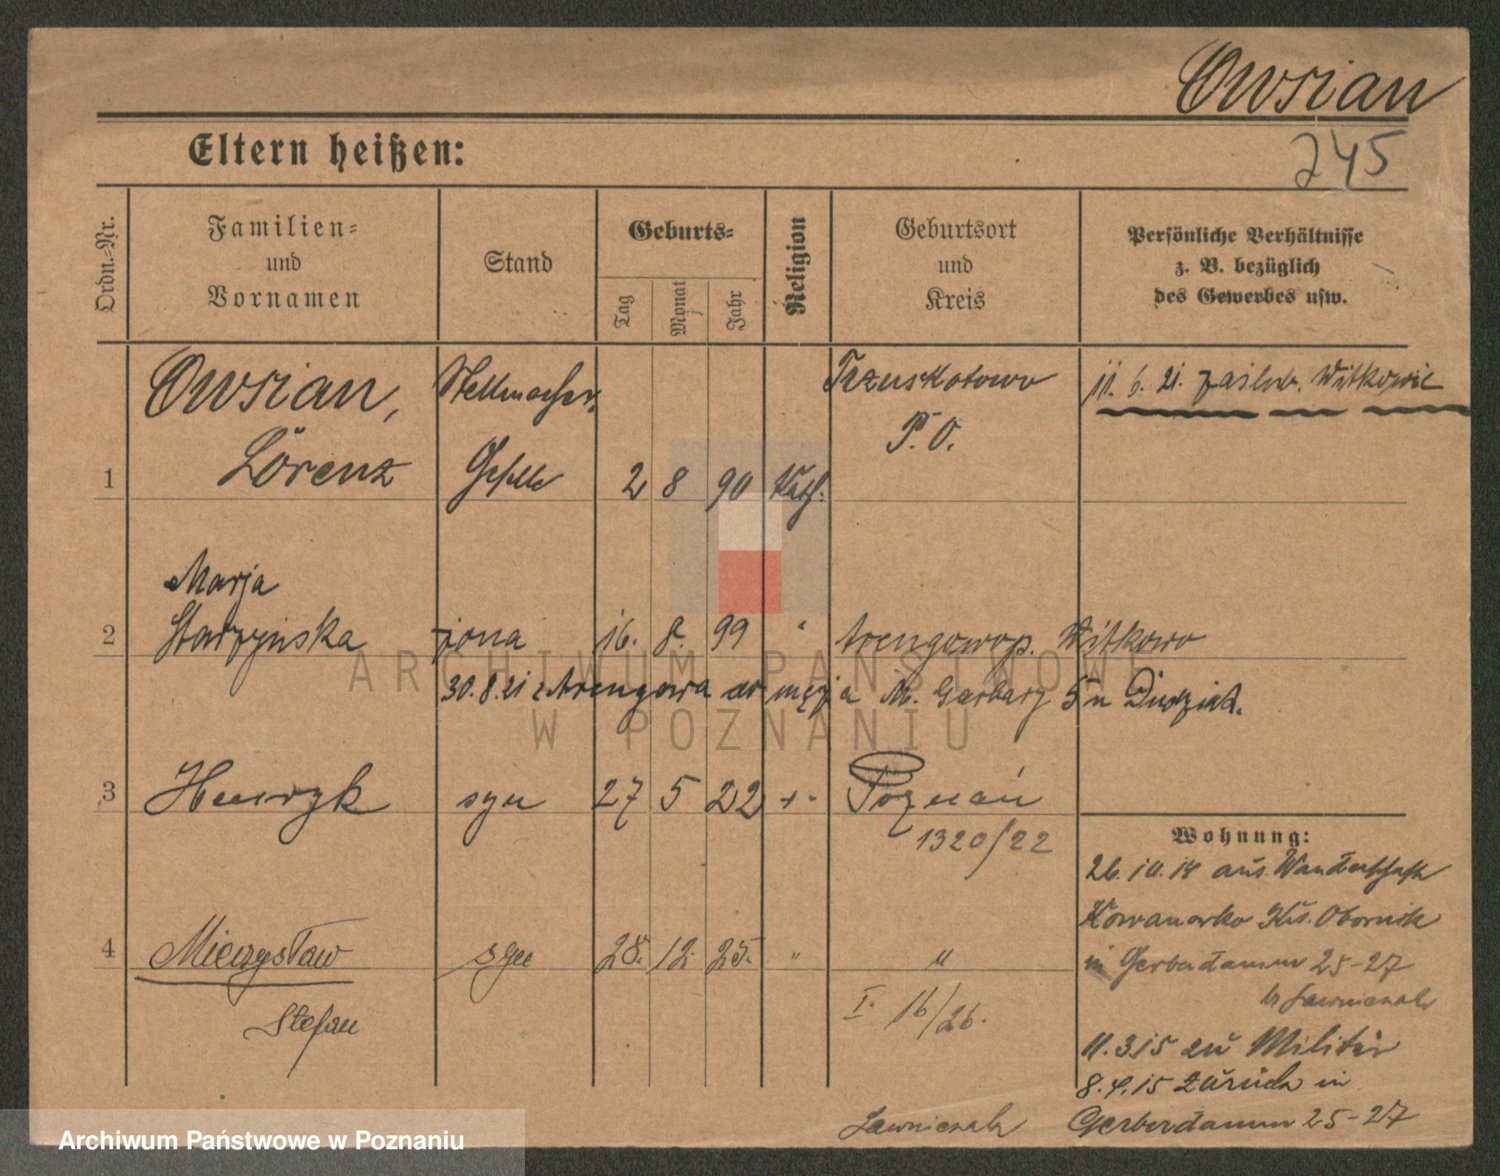 Owsian
245
Eltern heißen:
Ordn.-Nr.
Familien-
und
Vornamen
Stand
Geburts-
Tag
Monat
Jahr
Religion
Geburtsort
und
Kreis
Persönliche Verhältnisse
z. B. bezüglich
des Gewerbes usw.
1
Owsian,
Lorenz
Stellmacher
Geselle
2 8 90 Kath.
Trzuskotowo
P. O.
11. 6. 21. zaślub. Witkowie
2
Marja
Starzyńska
żona
16. 8. 99 "
Arcugowo p. Witkowo
30.8.21 z Arcugowa do męża M. Garbary 5 u
3
Henryk
syn
27 5 22
Poznań
1320/22
4
Mieczysław
Stefan
syn
28. 12. 25. "
"
I. 16/26.
Wohnung:
26.10.14 aus Wanderschaft
Kowanowko Krs. Obornik
in Gerberdamm 25-27
b Ławniczak
11.3.15 zu Militär
8.4.15 zurück in
Ławniczak Gerberdamm 25-27
ARCHIWUM PAŃSTWOWE
W POZNANIU
Archiwum Państwowe w Poznaniu